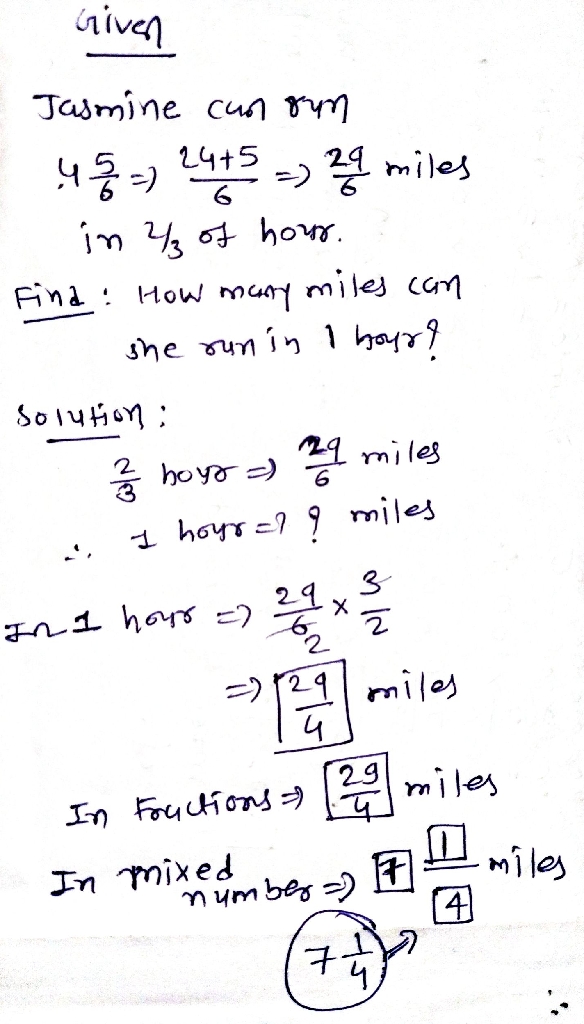 Given
Jasmine can run
4 5/6 => 24+5/6 => 29/6 miles
in 2/3 of hour.
Find : How many miles can
she run in 1 hour?
Solution :
2/3 hour => 29/6 miles
∴ 1 hour => ? miles
In 1 hour => 29/6 × 3/2
2
=> 29/4 miles
In Fractions => 29/4 miles
In mixed
number => 7 1/4 miles
7 1/4